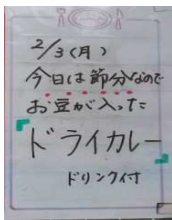 2/3(月)
今日は節分なので
お豆が入った
「ドライカレー」
ドリンク付